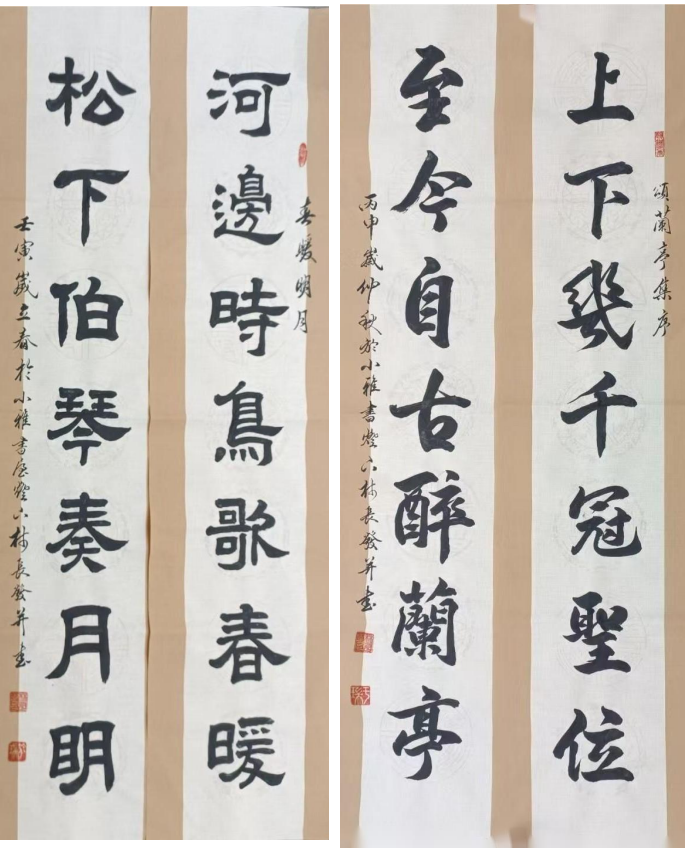 頌蘭亭集序
上下幾千冠聖位
至今自古醉蘭亭
丙申歲仲秋於小雅書燈下林長發并書
春暖明月
河邊時鳥歌春暖
松下伯琴奏月明
壬寅歲立春於小雅書屋燈下林長發并書